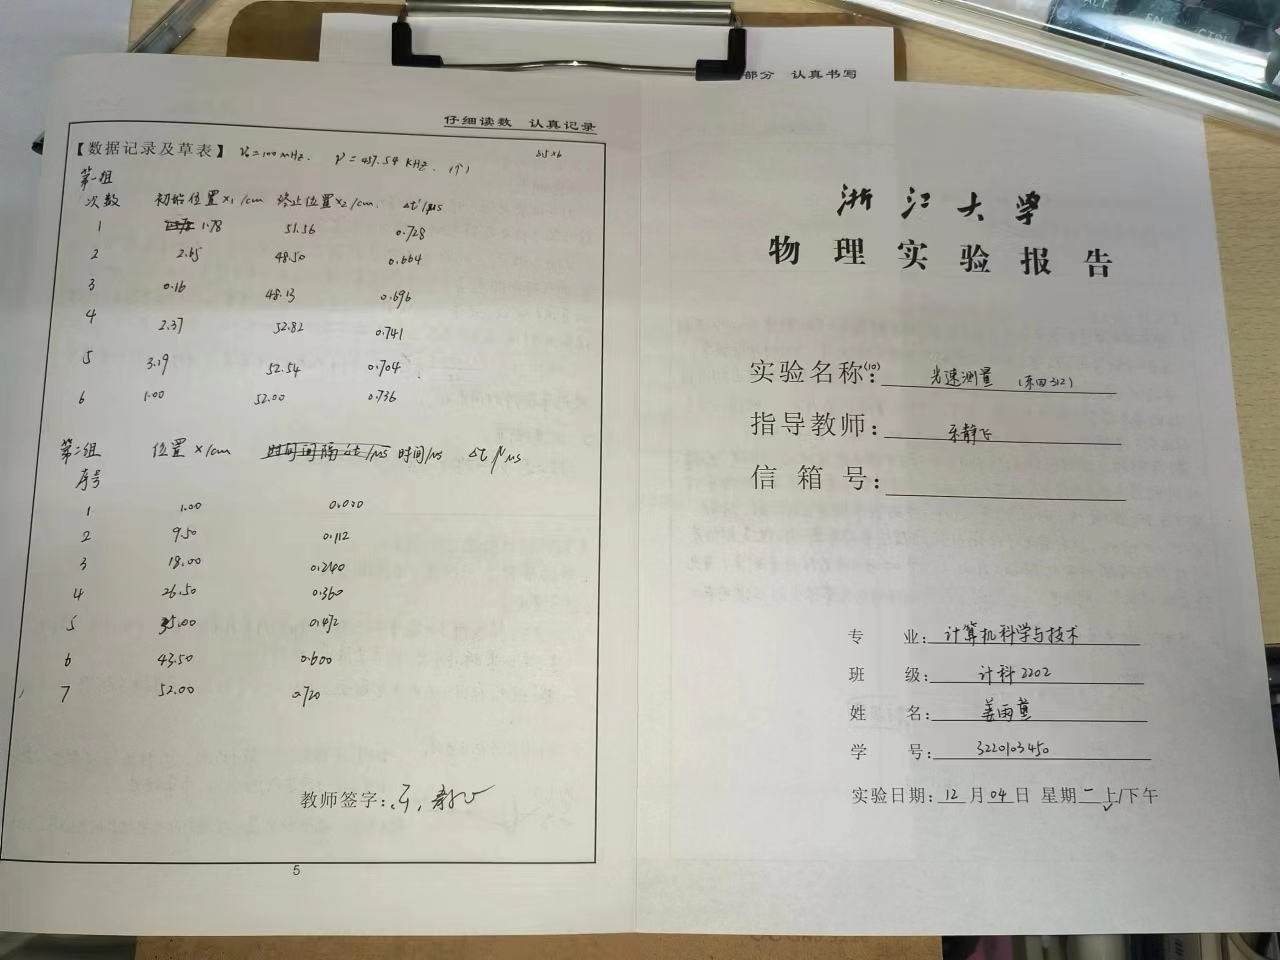 部分 认真书写
仔细读数 认真记录
【数据记录及草表】 ν₀=100mHz. ν'=457.54 KHz. (个) 8.5×6
第一组
次数 初始位置x₁/cm 终止位置x₂/cm. Δt'/μs
1 1.78 51.56 0.728
2 2.65 48.50 0.664
3 0.16 48.13 0.696
4 2.37 52.82 0.741
5 3.19 52.54 0.704
6 1.00 52.00 0.736
第二组 位置x/cm 时间间隔Δt/μs 时间/μs Δt/μs
序号
1 1.00 0.000
2 9.50 0.112
3 18.00 0.240
4 26.50 0.360
5 35.00 0.472
6 43.50 0.600
7 52.00 0.720
教师签字:
5
浙江大学
物理实验报告
实验名称(10): 光速测量 (东四312)
指导教师:
信箱号:
专 业: 计算机科学与技术
班 级: 计科2202
姓 名: 姜雨
学 号: 3220103450
实验日期: 12 月 04 日 星期一 上/下午